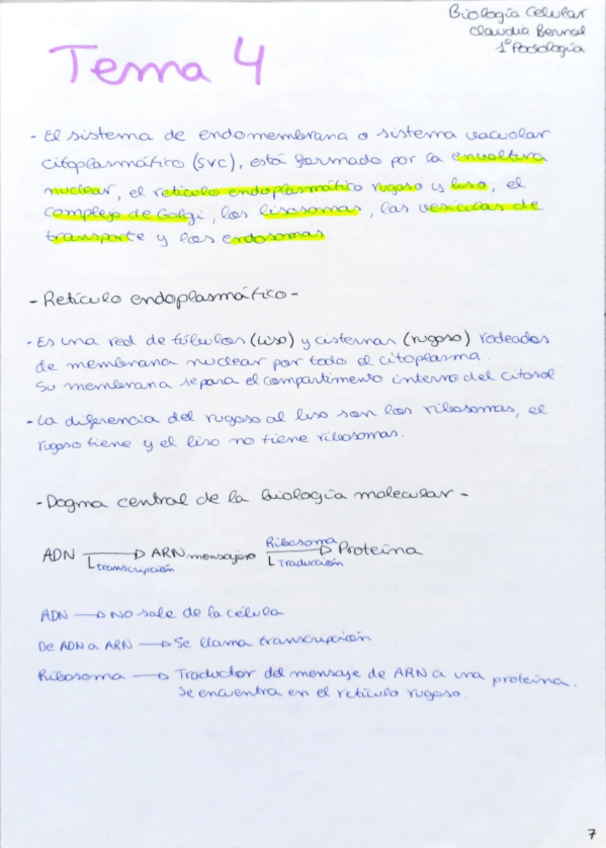 Biología Celular
Claudia Bernal
1º Podología
Tema 4
- El sistema de endomembrana o sistema vacuolar
citoplasmático (SVC), está formado por la envoltura
nuclear, el retículo endoplasmático rugoso y liso, el
complejo de Golgi, los lisosomas, las vesículas de
transporte y los endosomas.
- Retículo endoplasmático -
- Es una red de túbulos (liso) y cisternas (rugoso) rodeados
de membrana nuclear por todo el citoplasma.
Su membrana separa el compartimento interno del citosol
- La diferencia del rugoso al liso son los ribosomas, el
rugoso tiene y el liso no tiene ribosomas.
- Dogma central de la biología molecular -
ADN → ARN mensajero Ribosoma → Proteína
transcripción Traducción
ADN → No sale de la célula
De ADN a ARN → Se llama transcripción
Ribosoma → Traductor del mensaje de ARN a una proteína.
Se encuentra en el retículo rugoso.
7